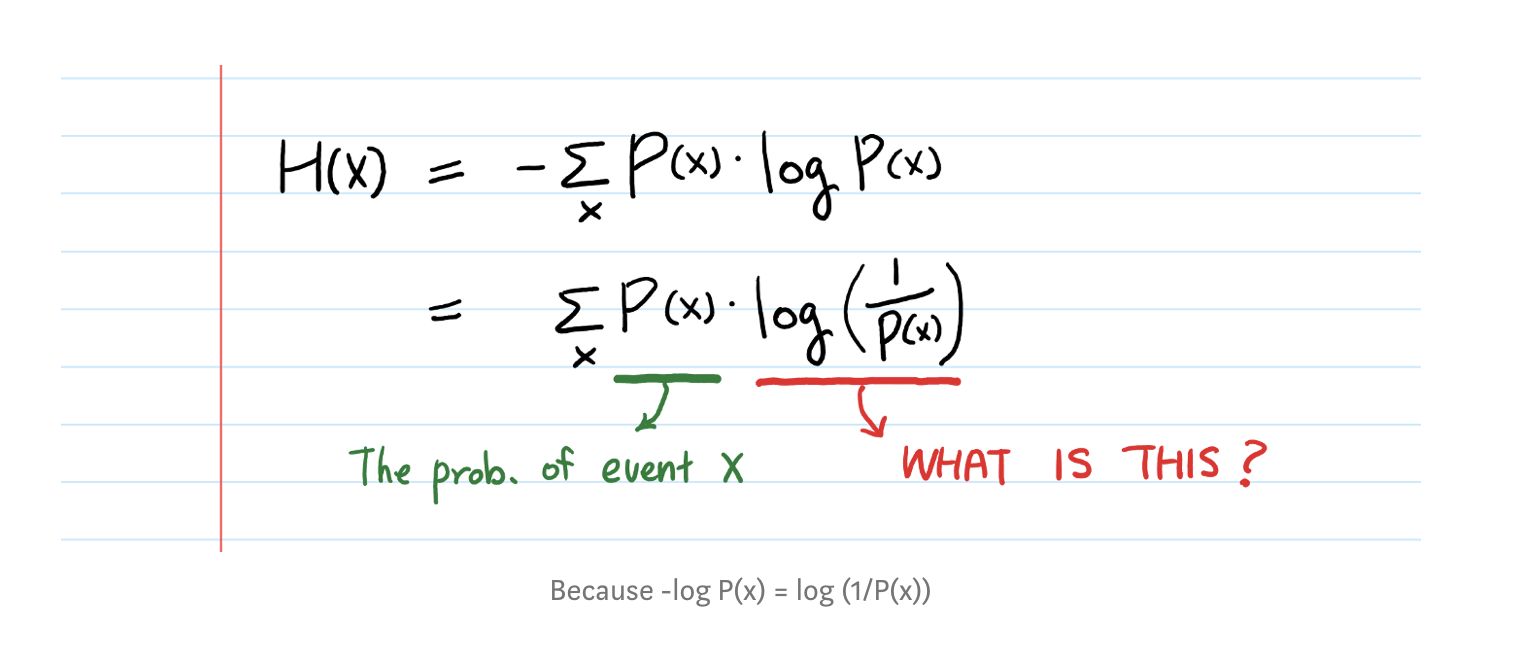 H(X) = -∑ P(x) · log P(x)
x
= ∑ P(x) · log (1/P(x))
x
The prob. of event X
WHAT IS THIS?
Because -log P(x) = log (1/P(x))